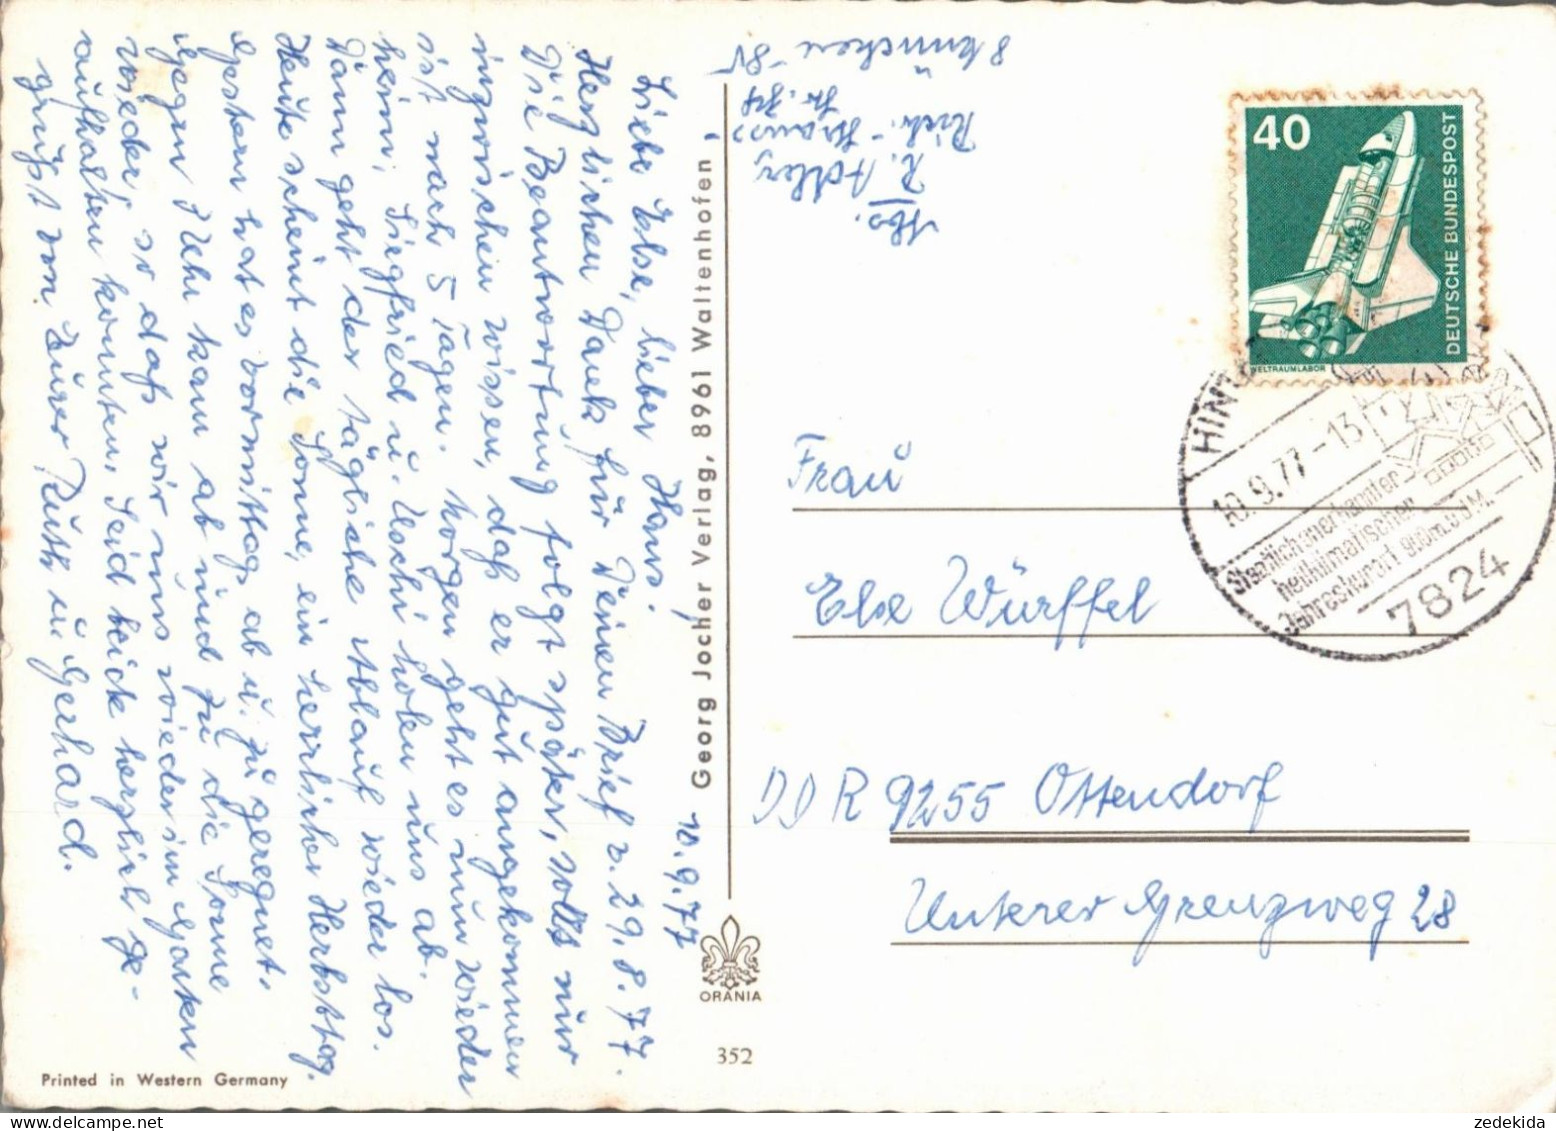 10.9.77
Liebe Else, lieber Hans!
Herzlichen Dank für Deinen Brief v. 29.8.77.
Die Beantwortung folgt später, sollt nur
inzwischen wissen, daß er gut angekommen
ist nach 5 Tagen. Morgen geht es nun wieder
heim, Siegfried u. Uschi holen uns ab.
Dann geht der tägliche Ablauf wieder los.
Heute scheint die Sonne, ein herrlicher Herbsttag.
Gestern hat es vormittags ab u. zu geregnet.
Gegen Uhr kam ab und zu die Sonne
wieder, so daß wir uns wieder im Garten
aufhalten konnten. Seid beide herzlich ge-
grüßt von Eurer Ruth u. Gerhard.
Printed in Western Germany
Georg Jocher Verlag, 8961 Waltenhofen
ORANIA
352
Abs.
R. Adler
Rich.-Strauss
Str.
8 München 81
40
DEUTSCHE BUNDESPOST
WELTRAUMLABOR
10.9.77-13
Staatlich anerkannter
heilklimatischer
Jahreskurort 910m.ü.d.M.
7824
Frau
Else Würffel
DDR 9255 Ottendorf
Unterer Grenzweg 28
zedekida